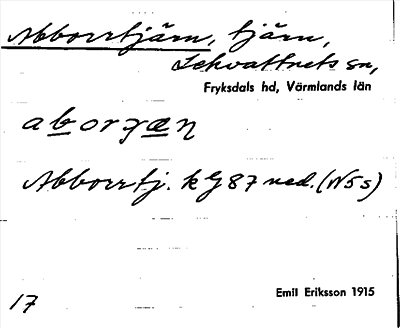 Abborrtjärn, tjärn,
Lekvattnets sn,
Fryksdals hd, Värmlands län
aborʒæn
Abborrtj. k G 87 ned. (N5s)
Emil Eriksson 1915
17